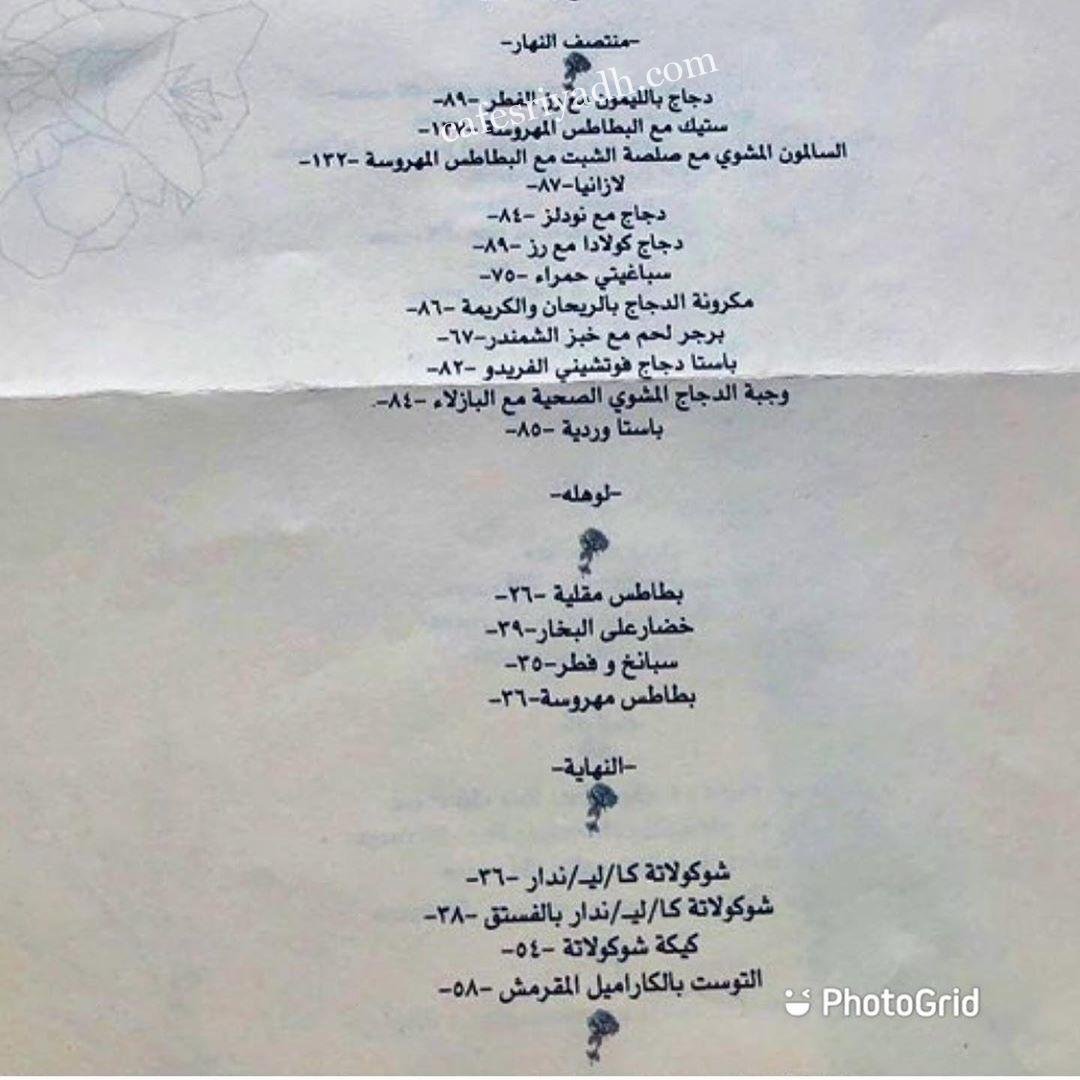 -منتصف النهار-
cafesriyadh.com
دجاج بالليمون مع رز الفطر -٨٩-
ستيك مع البطاطس المهروسة
السالمون المشوي مع صلصة الشبت مع البطاطس المهروسة -١٣٢-
لازانيا-٨٧-
دجاج مع نودلز -٨٤-
دجاج كولادا مع رز -٨٩-
سباغيتي حمراء -٧٥-
مكرونة الدجاج بالريحان والكريمة -٨٦-
برجر لحم مع خبز الشمندر-٦٧-
باستا دجاج فوتشيني الفريدو -٨٢-
وجبة الدجاج المشوي الصحية مع البازلاء -٨٤-.
باستا وردية -٨٥-
-لوهله-
بطاطس مقلية -٢٦-
خضارعلى البخار-٣٩-
سبانخ و فطر-٣٥-
بطاطس مهروسة-٣٦-
-النهاية-
شوكولاتة كا/ليـ/ندار -٣٦-
شوكولاتة كا/ليـ/ندار بالفستق -٣٨-
كيكة شوكولاتة -٥٤-
التوست بالكاراميل المقرمش -٥٨-
PhotoGrid